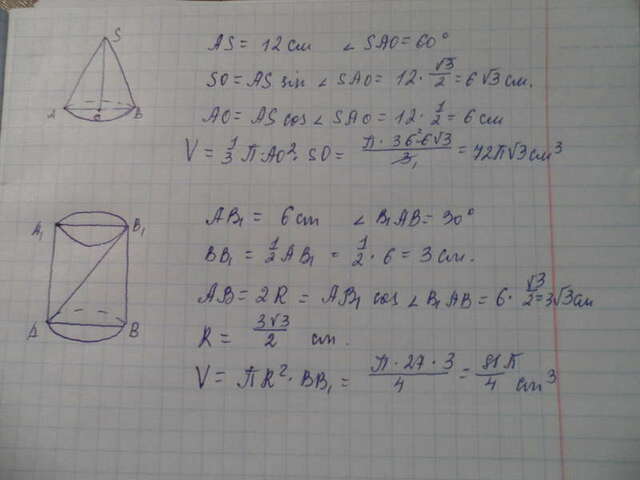 S
A O B
AS = 12 см ∠ SAO = 60°
SO = AS sin ∠ SAO = 12 · √3/2 = 6√3 см.
AO = AS cos ∠ SAO = 12 · 1/2 = 6 см
V = 1/3 П AO² · SO = П · 36 · 6√3 / 3 = 72П√3 см³
A₁ B₁
A B
AB₁ = 6 см ∠ B₁AB = 30°
BB₁ = 1/2 AB₁ = 1/2 · 6 = 3 см.
AB = 2R = AB₁ cos ∠ B₁AB = 6 · √3/2 = 3√3 см
R = 3√3/2 см.
V = ПR² · BB₁ = П · 27 · 3 / 4 = 81П/4 см³